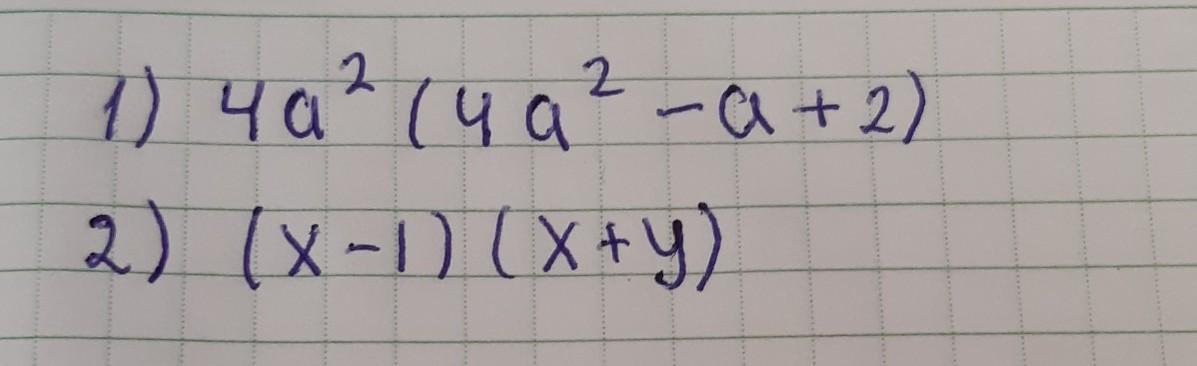 1) 4a² (4a² - a + 2)
2) (x - 1) (x + y)